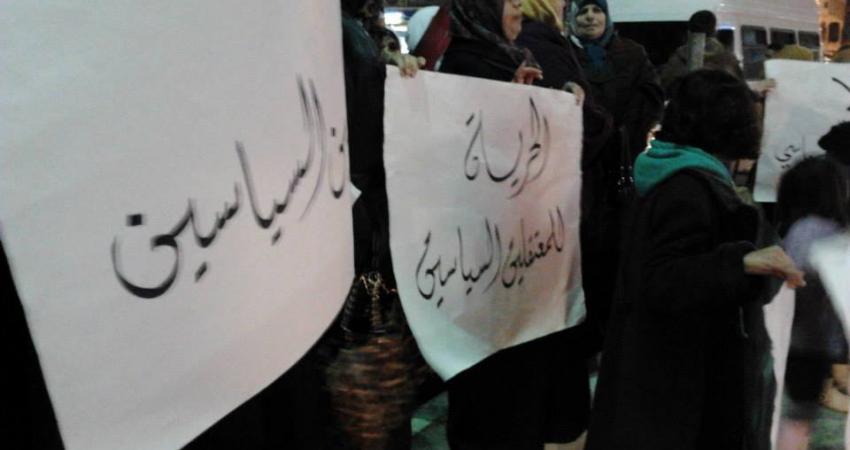 ن السياسين
الحرية
للمعتقلين السياسين
سياسي